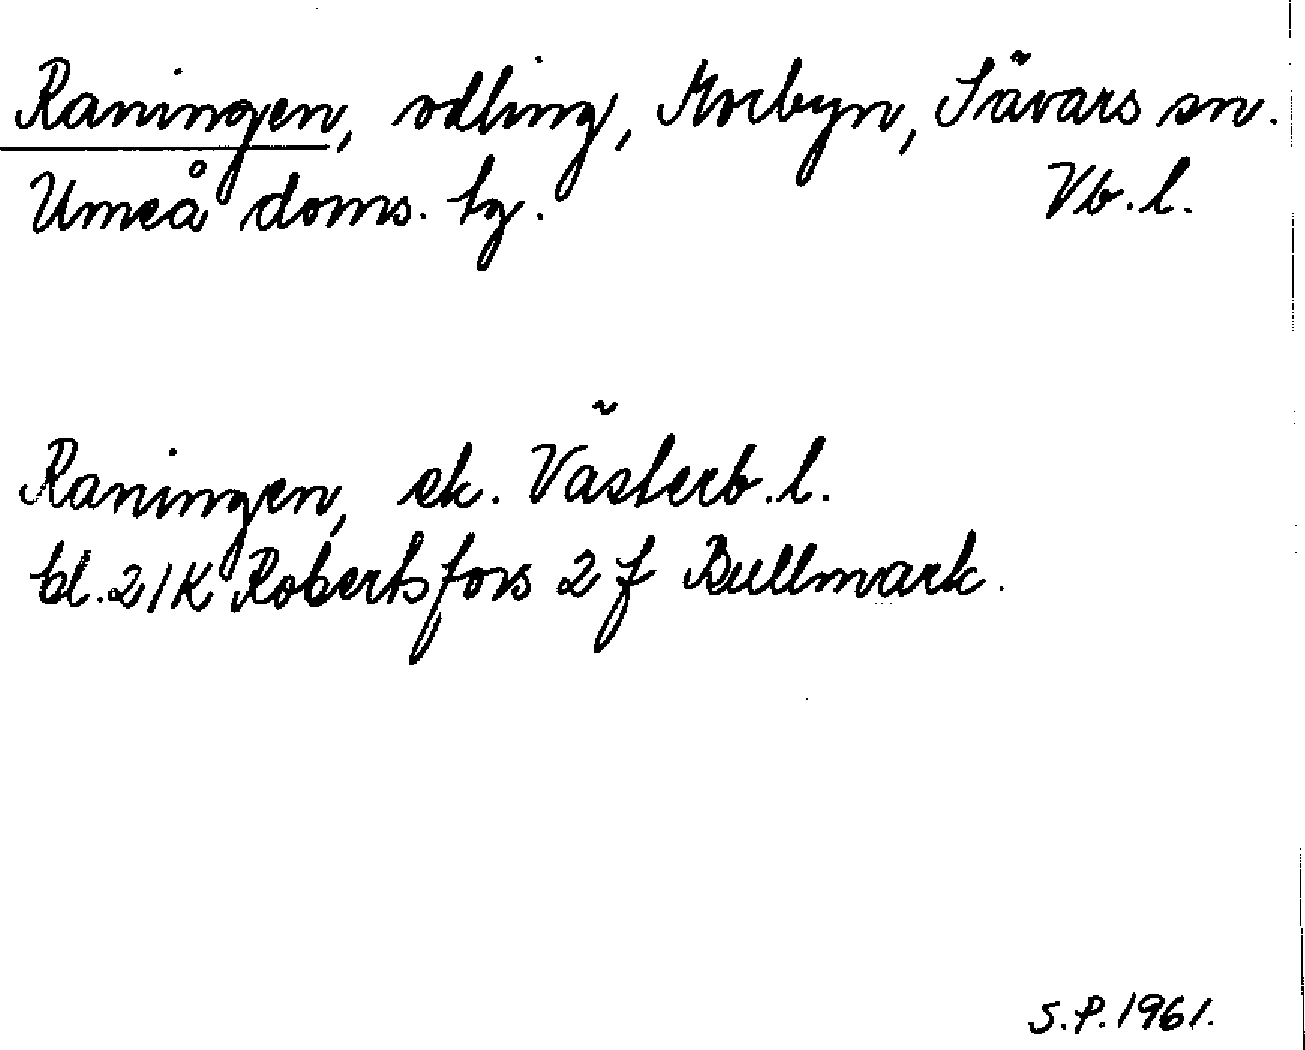 Raningen, odling, Norbyn, Sävars sn.
Umeå doms. tg. Vb. l.
Raningen, ek. Västerb. l.
bl. 21K Robertsfors 2 f Bullmark.
S.P. 1961.